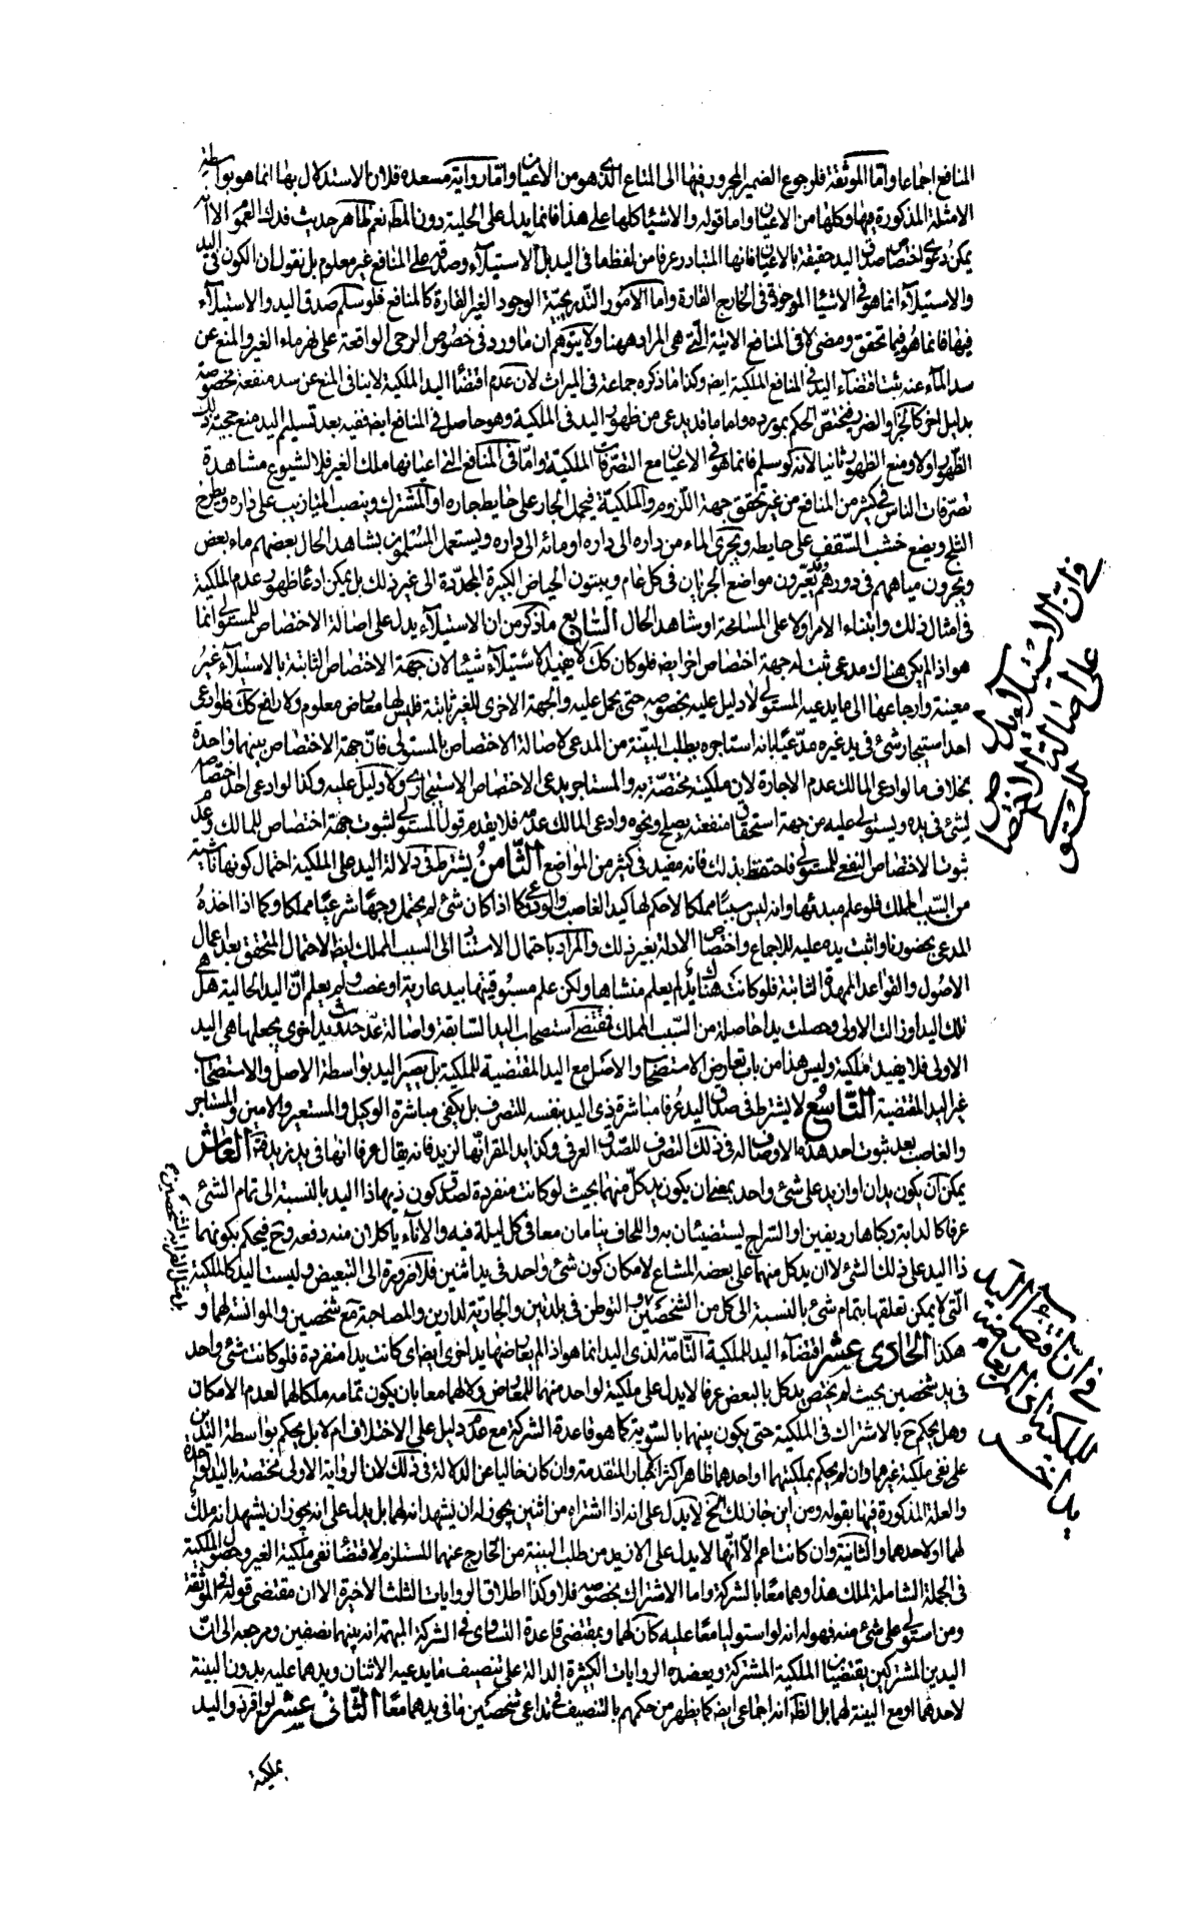 المنافع اجماعا واما الموثقة فلرجوع الضمير المجرور فيها الى المتاع الذي هو من الاعيان واما رواية مسعدة فلان الاستدلال بها انما هو بواسطة
الامثلة المذكورة فيها وكلها من الاعيان واما قوله والاشياء كلها على هذا فانما يدل على الحلية دون المط نعم ظاهر حديث فدك العموم الا انه
يمكن دعوى اختصاص صدق اليد حقيقة بالاعيان فانها المتبادر عرفا من لفظها في اليد بل الاستيلاء وصدقه على المنافع غير معلوم بل نقول ان الكون في اليد
والاستيلاء انما هو في الاشياء الموجودة في الخارج القارة واما الامور التدريجية الوجود الغير القارة كالمنافع فلو سلم صدق اليد والاستيلاء
فيها فانما هو فيما تحقق ومضى لا في المنافع الاتية التي هي المراد ههنا ولا يتوهم ان ما ورد في خصوص الرحى الواقعة على نهر ماء الغير والمنع عن
سد الماء عنه يثبت اقتضاء اليد في المنافع الملكية ايضا وكذا ما ذكره جماعة في الميراث لان عدم اقتضاء اليد الملكية لا ينافي المنع عن سد منفعة مخصوصة
بدليل اخر كالجزاء والضرر فيختص الحكم بمورده واما ما قد يدعى من ظهور اليد في الملكية وهو حاصل في المنافع ايضه ففيه بعد تسليم اليد منع حجية ذلك
الظهور اولا ومنع الظهور ثانيا لانه لو سلم فانما هو في الاعيان مع التصرفات الملكية واما في المنافع التي اعيانها ملك الغير فلا لشيوع مشاهدة
تصرفات الناس في كثير من المنافع من غير تحقق جهة اللزوم والملكية فيحمل الجار على حايط جاره او المشترك وينصب الميازيب على داره ويطرح
الثلج ويضع خشب السقف على حايطه ويجري الماء من داره الى داره او مائه الى داره ويستعمل المسلمون بشاهد الحال بعضهم ماء بعض
ويجرون مياههم في دورهم وقد يغيرون مواضع الجريان في كل عام ويبنون الحياض الكبيرة المجددة الى غير ذلك بل يمكن ادعاء ظهور عدم الملكية
في امثال ذلك وابتناء الامر اولا على المسامحة او شاهد الحال السابع ما ذكر من ان الاستيلاء يدل على اصالة الاختصاص للمستولى انما
هو اذا لم يكن هناك مدعى ثبت له جهة اختصاص اخر ايضه فلو كان كك لا يفيد الاستيلاء شيئا لان جهة الاختصاص الثابتة بالاستيلاء غير
معينة وارجاعها الى ما يدعيه المستولى لا دليل عليه بخصوصه حتى يحمل عليه والجهة الاخرى للغير ثابتة فليس لها معارض معلوم ولا رافع كك فلو ادعى
احد استيجار شئ في يد غيره مدعيا بانه استاجره يطلب البينة من المدعى لاصالة الاختصاص بالمستولى فان جهة الاختصاص بينهما واحدة
بخلاف ما لو ادعى المالك عدم الاجارة لان ملكيته مختصة به والمستاجر يدعى الاختصاص الاستيجاري ولا دليل عليه وكذا لو ادعى احد اختصاصه
بشئ في يده ويستولى عليه من جهة استحقاق منفعته بصلح ونحوه وادعى المالك عدمه فلا يقدم قول المستولى لثبوت جهة اختصاص للمالك وعدم
ثبوت الاختصاص النفعي للمستولى فاحتفظ بذلك فانه مفيد في كثير من المواضع الثامن يشترط في دلالة اليد على الملكية احتمال كونها ناشئة
من السبب المملك فلو علم مبدئها وانه ليس سببا مملكا لا حكم لها كيد الغاصب والودعي كما اذا كان شئ لم يحتمل وجها شرعيا مملكا وكما اذا اخذه
المدعى بحضورنا واثبت يده عليه للاجماع واختصاص الادلة بغير ذلك والمراد باحتمال الاستناد الى السبب المملك ايضا الاحتمال المتحقق بعد اعمال
الاصول والقواعد الممهدة الثابتة فلو كانت هناك يد لم يعلم منشاها ولكن علم مسبوقيتها بيد عارية او غصب ولم يعلم ان اليد الحالية هل هي
تلك اليد او زالت الاولى وحصلت يد حاصلة من السبب المملك فمقتضى استصحاب اليد السابقة واصالة عدم حدوث يد اخرى يجعلها هي اليد
الاولى فلا يفيد ملكية وليس هذا من باب تعارض الاستصحاب والاصل مع اليد المقتضية للملكية بل يصير اليد بواسطة الاصل والاستصحاب
غير اليد المقتضية التاسع لا يشترط في صدق اليد عرفا مباشرة ذي اليد بنفسه للتصرف بل يكفي مباشرة الوكيل والمستعير والامين والمستاجر
والغاصب بعد ثبوت احد هذه الاوصاف له في ذلك التصرف للصدق العرفي وكذا يد المقر انها لزيد فانه يقال عرفا انها في يد زيد العاشر
يمكن ان يكون يدان او ازيد على شئ واحد بمعنى ان يكون يد كل منهما بحيث لو كانت منفردة لصدق كون ذيها ذا اليد بالنسبة الى تمام الشئ
عرفا كالدابة ركباها رديفين او السراج يستضيئان به واللحاف ينامان معا في كل ليلة فيه والاناء ياكلان منه دفعه وح فيحكم بكونهما
ذا اليد على ذلك الشئ لا ان يد كل منهما على بعضه المشاع لامكان كون شئ واحد في يد اثنين فلا ضرورة الى التبعيض وليست اليد كالملكية
التي لا يمكن تعلقها بتمام شئ بالنسبة الى كل من الشخصين والتوطن في بلدتين والجارية لدارين والمصاحبة مع شخصين والموانسة لهما و
هكذا الحادي عشر اقتضاء اليد للملكية التامة لذي اليد انما هو اذا لم يعارضها يد اخرى ايضا اي كانت يدا منفردة فلو كانت شئ واحد
في يد شخصين بحيث لم يختص يد كل بالبعض عرفا لا يدل على ملكية لواحد منهما للمعارض ولا لهما معا بان يكون تمامه ملكا لهما لعدم الامكان
وهل يحكم ح بالاشتراك في الملكية حتى يكون بينهما بالسوية كما هو قاعدة الشركة مع عدم دليل على الاختلاف ام لا بل يحكم بواسطة اليدين
على نفي ملكية غيرهما وان لم يحكم بملكيتهما او احدهما ظاهر اكثر الاخبار المتقدمة وان كان خاليا عن الدلالة في ذلك لان الرواية الاولى مختصة باليد الواحدة
والعلة المذكورة فيها بقوله ومن اين جاز لك الخ لا يدل على انه اذا اشتراه من اثنين يجوز له ان يشهد انه لهما بل يدل على انه يجوز ان يشهد انه ملك
لهما او لاحدهما والثانية وان كانت اعم الا انها لا يدل على الازيد من طلب البينة من الخارج عنهما المستلزم لاقتضاء نفي ملكية الغير وحصول الملكية
في الجملة الشاملة لملك هذا وهما معا بالشركة واما الاشتراك بخصوصه فلا وكذا اطلاق الروايات الثلث الاخيرة الا ان مقتضى قوله في الموثقة
ومن استولى على شئ منه فهو له انه لو استوليا معا عليه كان لهما وبمقتضى قاعدة التساوي في الشركة المبهمة انه بينهما نصفين ومرجعه الى ان
اليدين المشتركين يقتضيان الملكية المشتركة ويعضده الروايات الكثيرة الدالة على تنصيف ما يدعيه الاثنان ويدهما عليه بدون البينة
لاحدهما او مع البينة لهما بل الظ انه اجماعي ايضه كما يظهر من حكمهم بالتنصيف في تداعي شخصين ما في يدهما معا الثاني عشر لو اقر ذو اليد
بملكية
في ان الاستيلاء يدل
على اصالة الاختصاص
للمستولى
في ان اقتضاء اليد
للملكية اذا لم يعارضه
يد اخرى